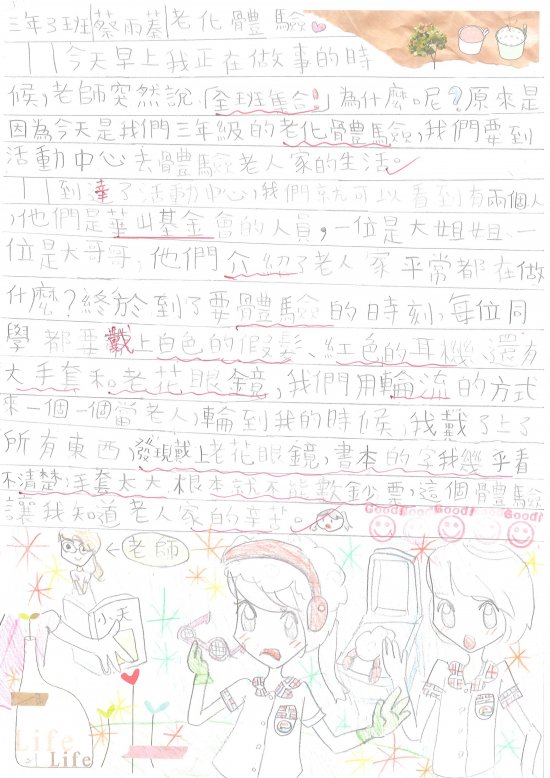 三年3班 蔡雨蓁 老化體驗
今天早上我正在做事的時
候,老師突然說「全班集合!」為什麼呢?原來是
因為今天是我們三年級的老化體驗,我們要到
活動中心去體驗老人家的生活。
到達了活動中心,我們就可以看到有兩個人
,他們是華山基金會的人員,一位是大姐姐、一
位是大哥哥,他們介紹了老人家平常都在做
什麼?終於到了要體驗的時刻,每位同
學都要戴上白色的假髮、紅色的耳機、還有
大手套和老花眼鏡,我們用輪流的方式
來一個一個當老人,輪到我的時候,我戴了上了
所有東西,發現戴上老花眼鏡,書本的字我幾乎看
不清楚;手套太大根本就不能數鈔票,這個體驗
讓我知道老人家的辛苦。
Good! Good! Good! Good! Good!
老師
小天
Life
Life